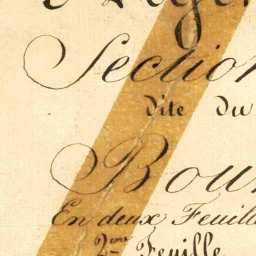 Section
dite du
Bou
En deux Feuill
2me Feuille